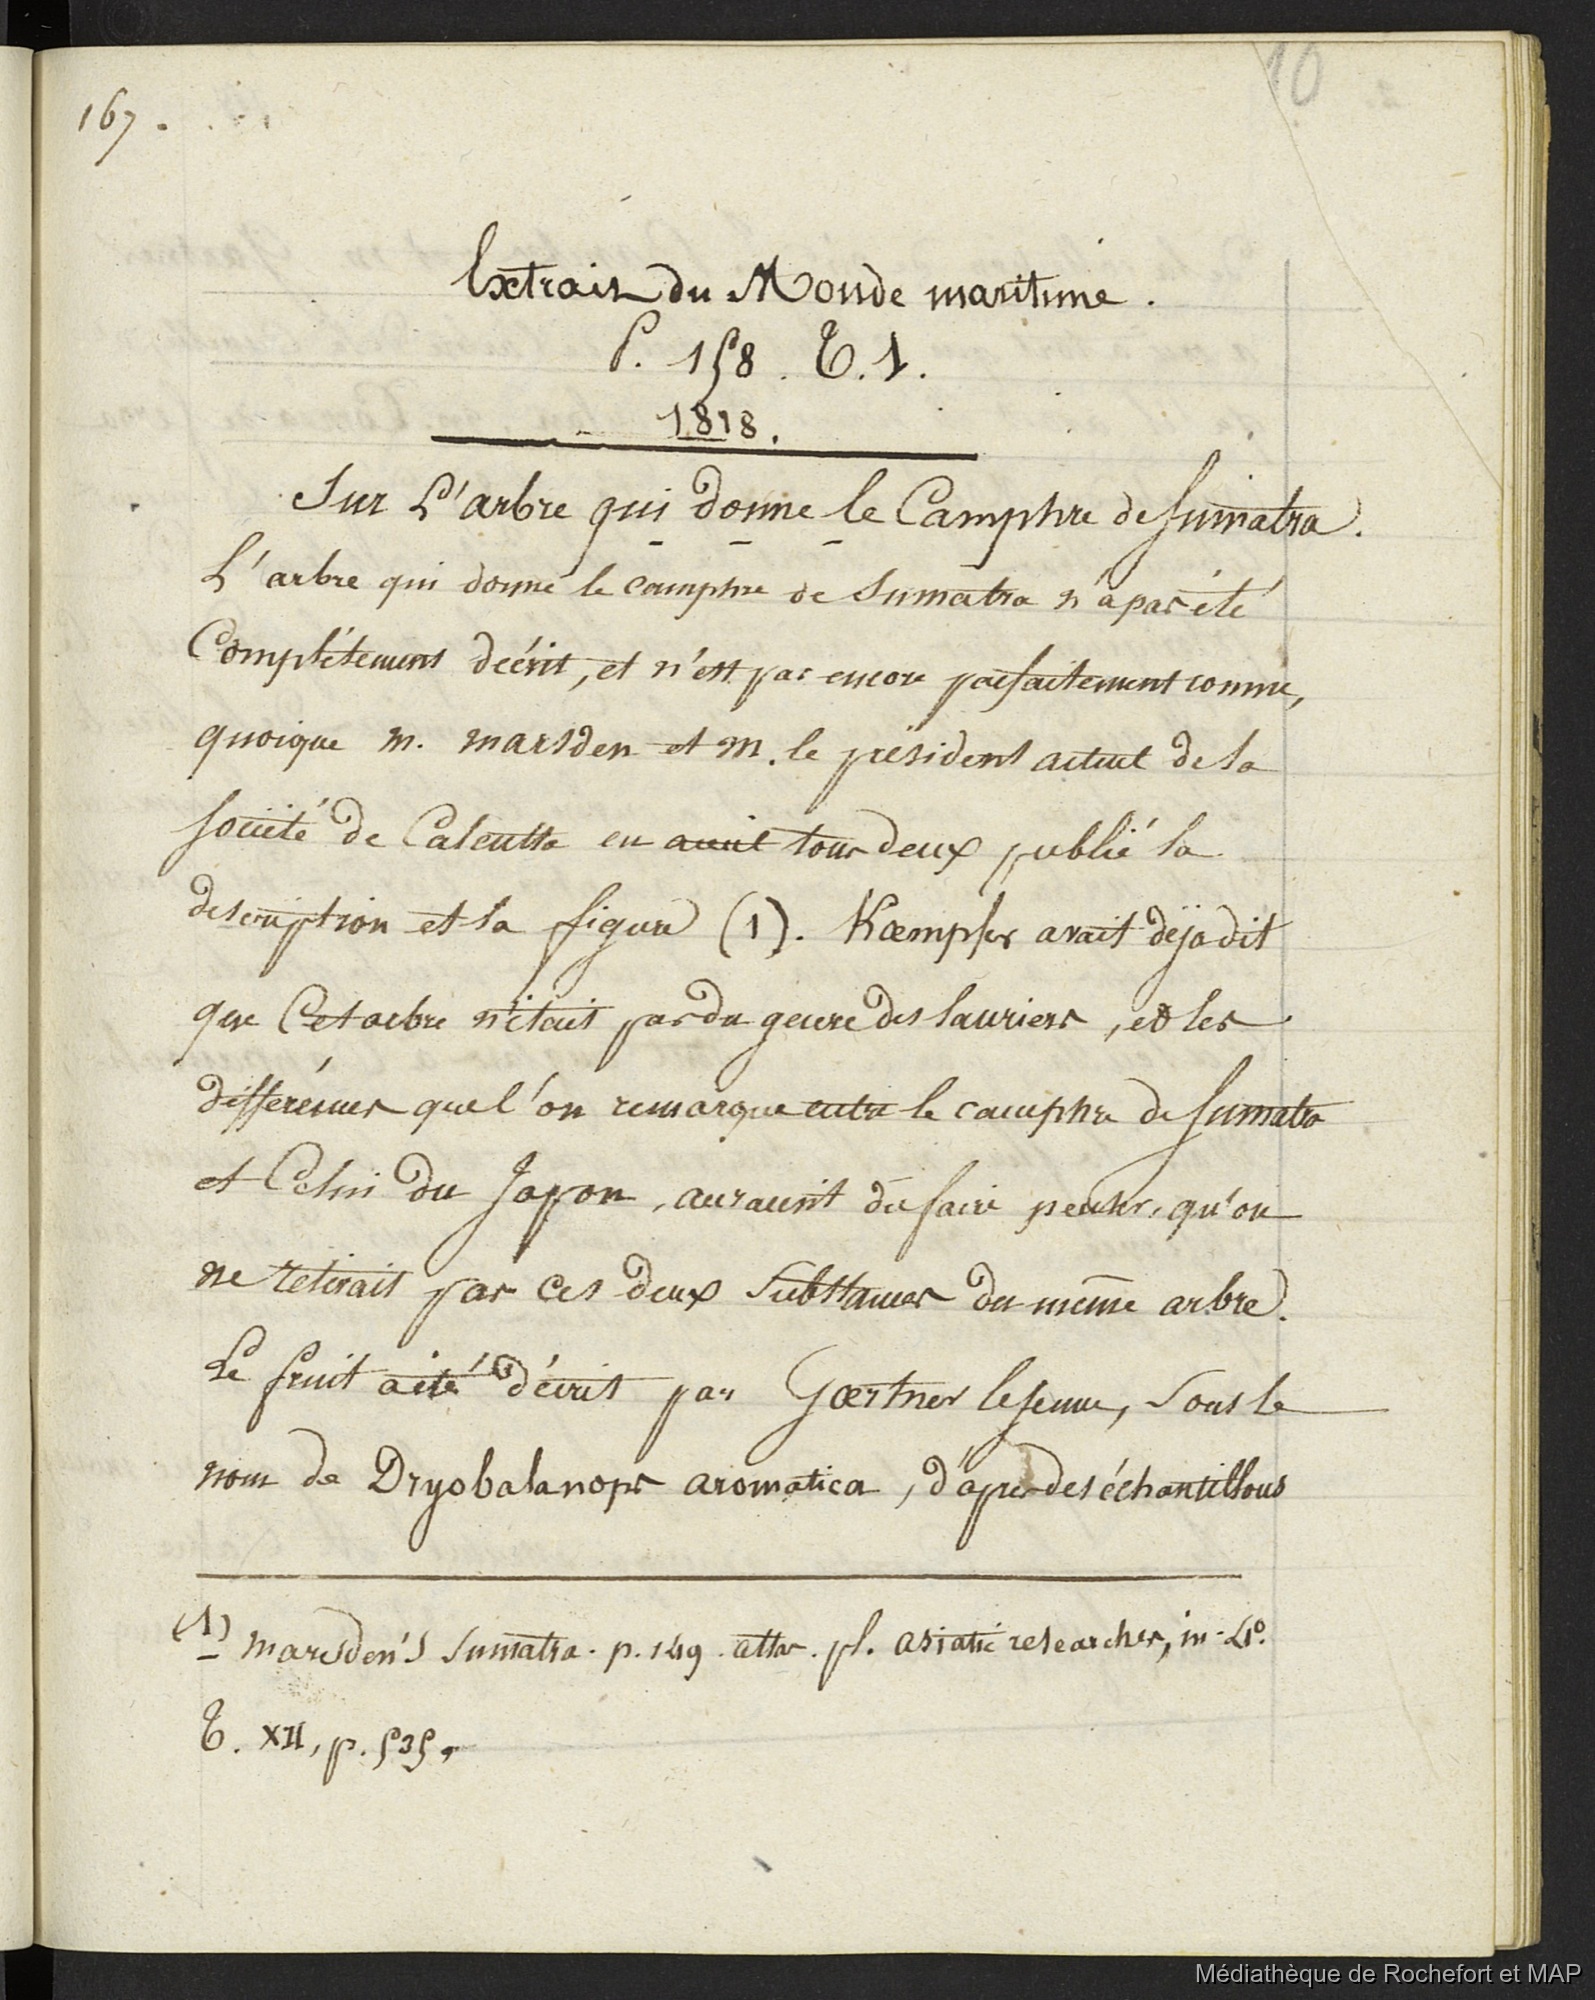 10
167.
Extrait du Monde maritime.
P. 158. T. 1.
1818.
Sur L'arbre qui donne le Camphre de Sumatra.
L'arbre qui donne le camphre de Sumatra n'a pas été
Complétement décrit, et n'est pas encore parfaitement connu,
quoique m. marsden et M. le président actuel de la
société de Calcutta en aient tous deux publié la
description et la figure (1). Kœmpfer avait déja dit
que Cet arbre n'était pas du genre des lauriers, et les
différences que l'on remarque entre le camphre de Sumatra
et Celui du Japon, auraient dû faire penser, qu'on
ne retirait pas ces deux Substances du même arbre.
Le fruit a été décrit par Gœrtner le jeune, Sous le
nom de Dryobalanops aromatica, d'après des échantillons
(1) marsden's Sumatra. p. 149. atlas. pl. asiatic researches, in-4º.
T. XII, p. 535.
Médiathèque de Rochefort et MAP